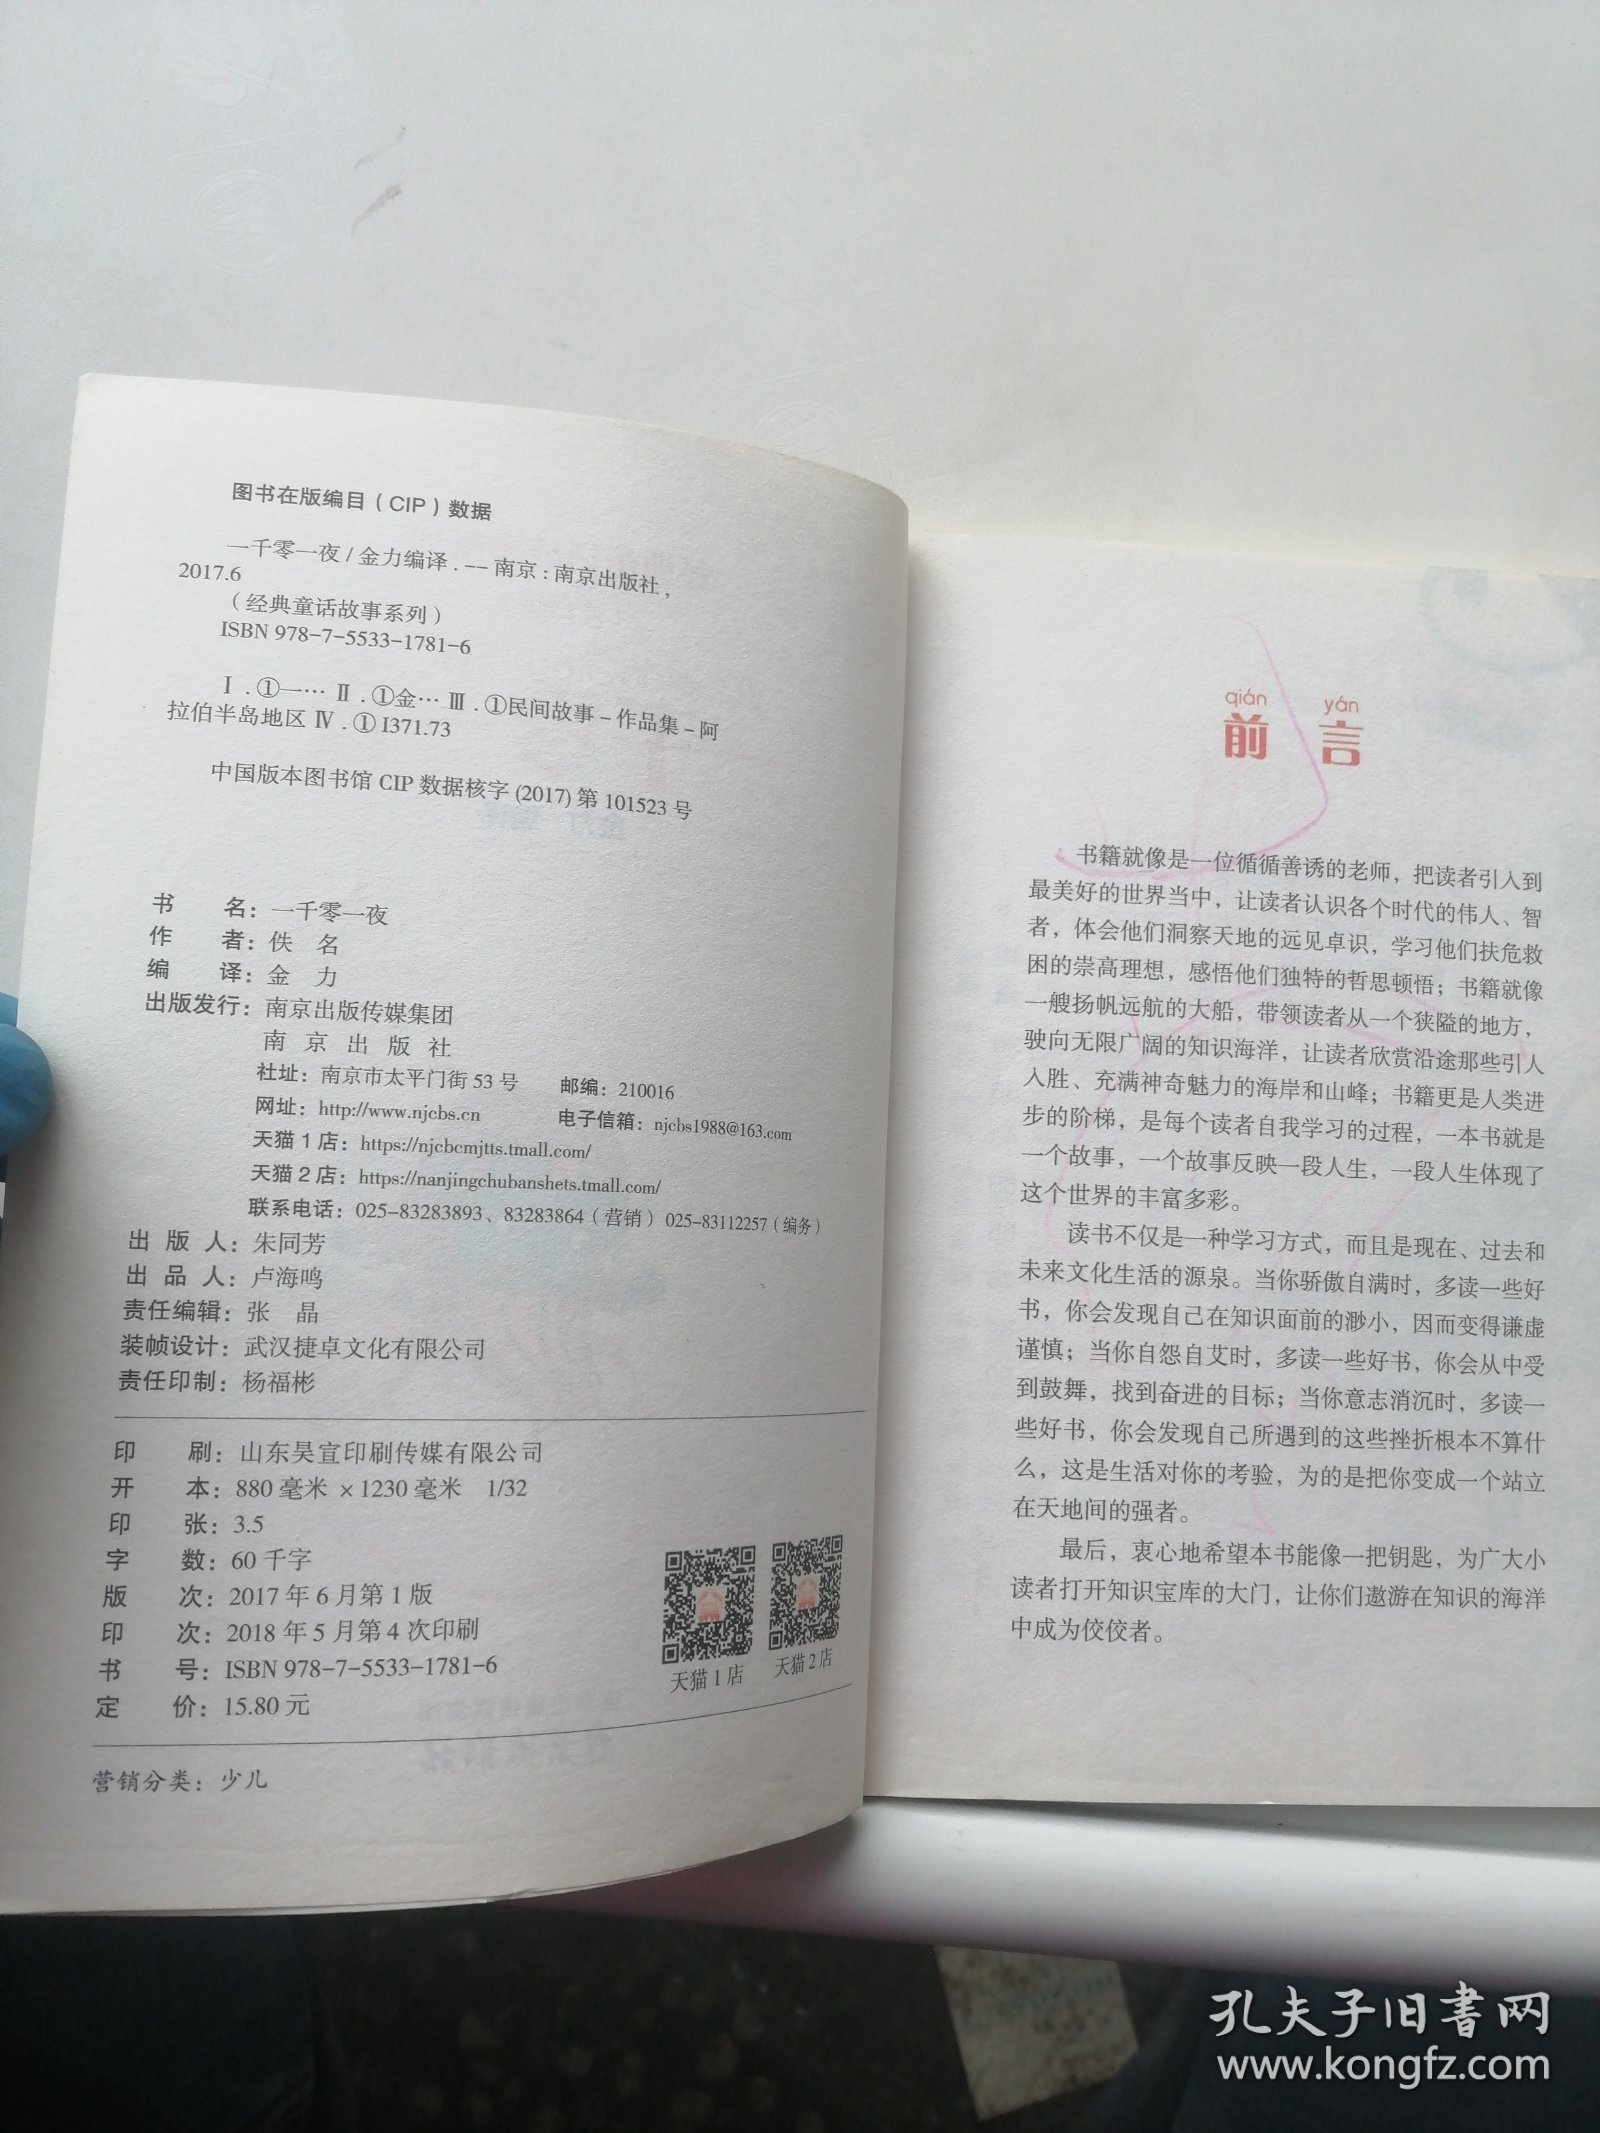 图书在版编目（CIP）数据
一千零一夜 / 金力编译. -- 南京：南京出版社，
2017.6
（经典童话故事系列）
ISBN 978-7-5533-1781-6
Ⅰ.①一… Ⅱ.①金… Ⅲ.①民间故事－作品集－阿
拉伯半岛地区 Ⅳ.①I371.73
中国版本图书馆 CIP 数据核字 (2017) 第 101523 号
书 名：一千零一夜
作 者：佚 名
编 译：金 力
出版发行：南京出版传媒集团
南 京 出 版 社
社址：南京市太平门街 53 号 邮编：210016
网址：http://www.njcbs.cn 电子信箱：njcbs1988@163.com
天猫 1 店：https://njcbcmjtts.tmall.com/
天猫 2 店：https://nanjingchubanshets.tmall.com/
联系电话：025-83283893、83283864（营销） 025-83112257（编务）
出 版 人：朱同芳
出 品 人：卢海鸣
责任编辑：张 晶
装帧设计：武汉捷卓文化有限公司
责任印制：杨福彬
印 刷：山东昊宣印刷传媒有限公司
开 本：880 毫米 ×1230 毫米 1/32
印 张：3.5
字 数：60 千字
版 次：2017 年 6 月第 1 版
印 次：2018 年 5 月第 4 次印刷
书 号：ISBN 978-7-5533-1781-6
定 价：15.80 元
天猫 1 店 天猫 2 店
营销分类：少儿
qián yán
前 言
书籍就像是一位循循善诱的老师，把读者引入到
最美好的世界当中，让读者认识各个时代的伟人、智
者，体会他们洞察天地的远见卓识，学习他们扶危救
困的崇高理想，感悟他们独特的哲思顿悟；书籍就像
一艘扬帆远航的大船，带领读者从一个狭隘的地方，
驶向无限广阔的知识海洋，让读者欣赏沿途那些引人
入胜、充满神奇魅力的海岸和山峰；书籍更是人类进
步的阶梯，是每个读者自我学习的过程，一本书就是
一个故事，一个故事反映一段人生，一段人生体现了
这个世界的丰富多彩。
读书不仅是一种学习方式，而且是现在、过去和
未来文化生活的源泉。当你骄傲自满时，多读一些好
书，你会发现自己在知识面前的渺小，因而变得谦虚
谨慎；当你自怨自艾时，多读一些好书，你会从中受
到鼓舞，找到奋进的目标；当你意志消沉时，多读一
些好书，你会发现自己所遇到的这些挫折根本不算什
么，这是生活对你的考验，为的是把你变成一个站立
在天地间的强者。
最后，衷心地希望本书能像一把钥匙，为广大小
读者打开知识宝库的大门，让你们遨游在知识的海洋
中成为佼佼者。
孔夫子旧书网
www.kongfz.com